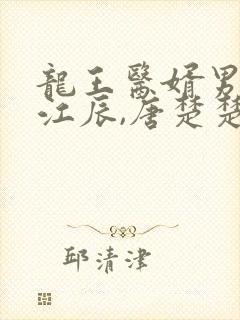 龍王醫婿男
江辰,唐楚楚
邱清津